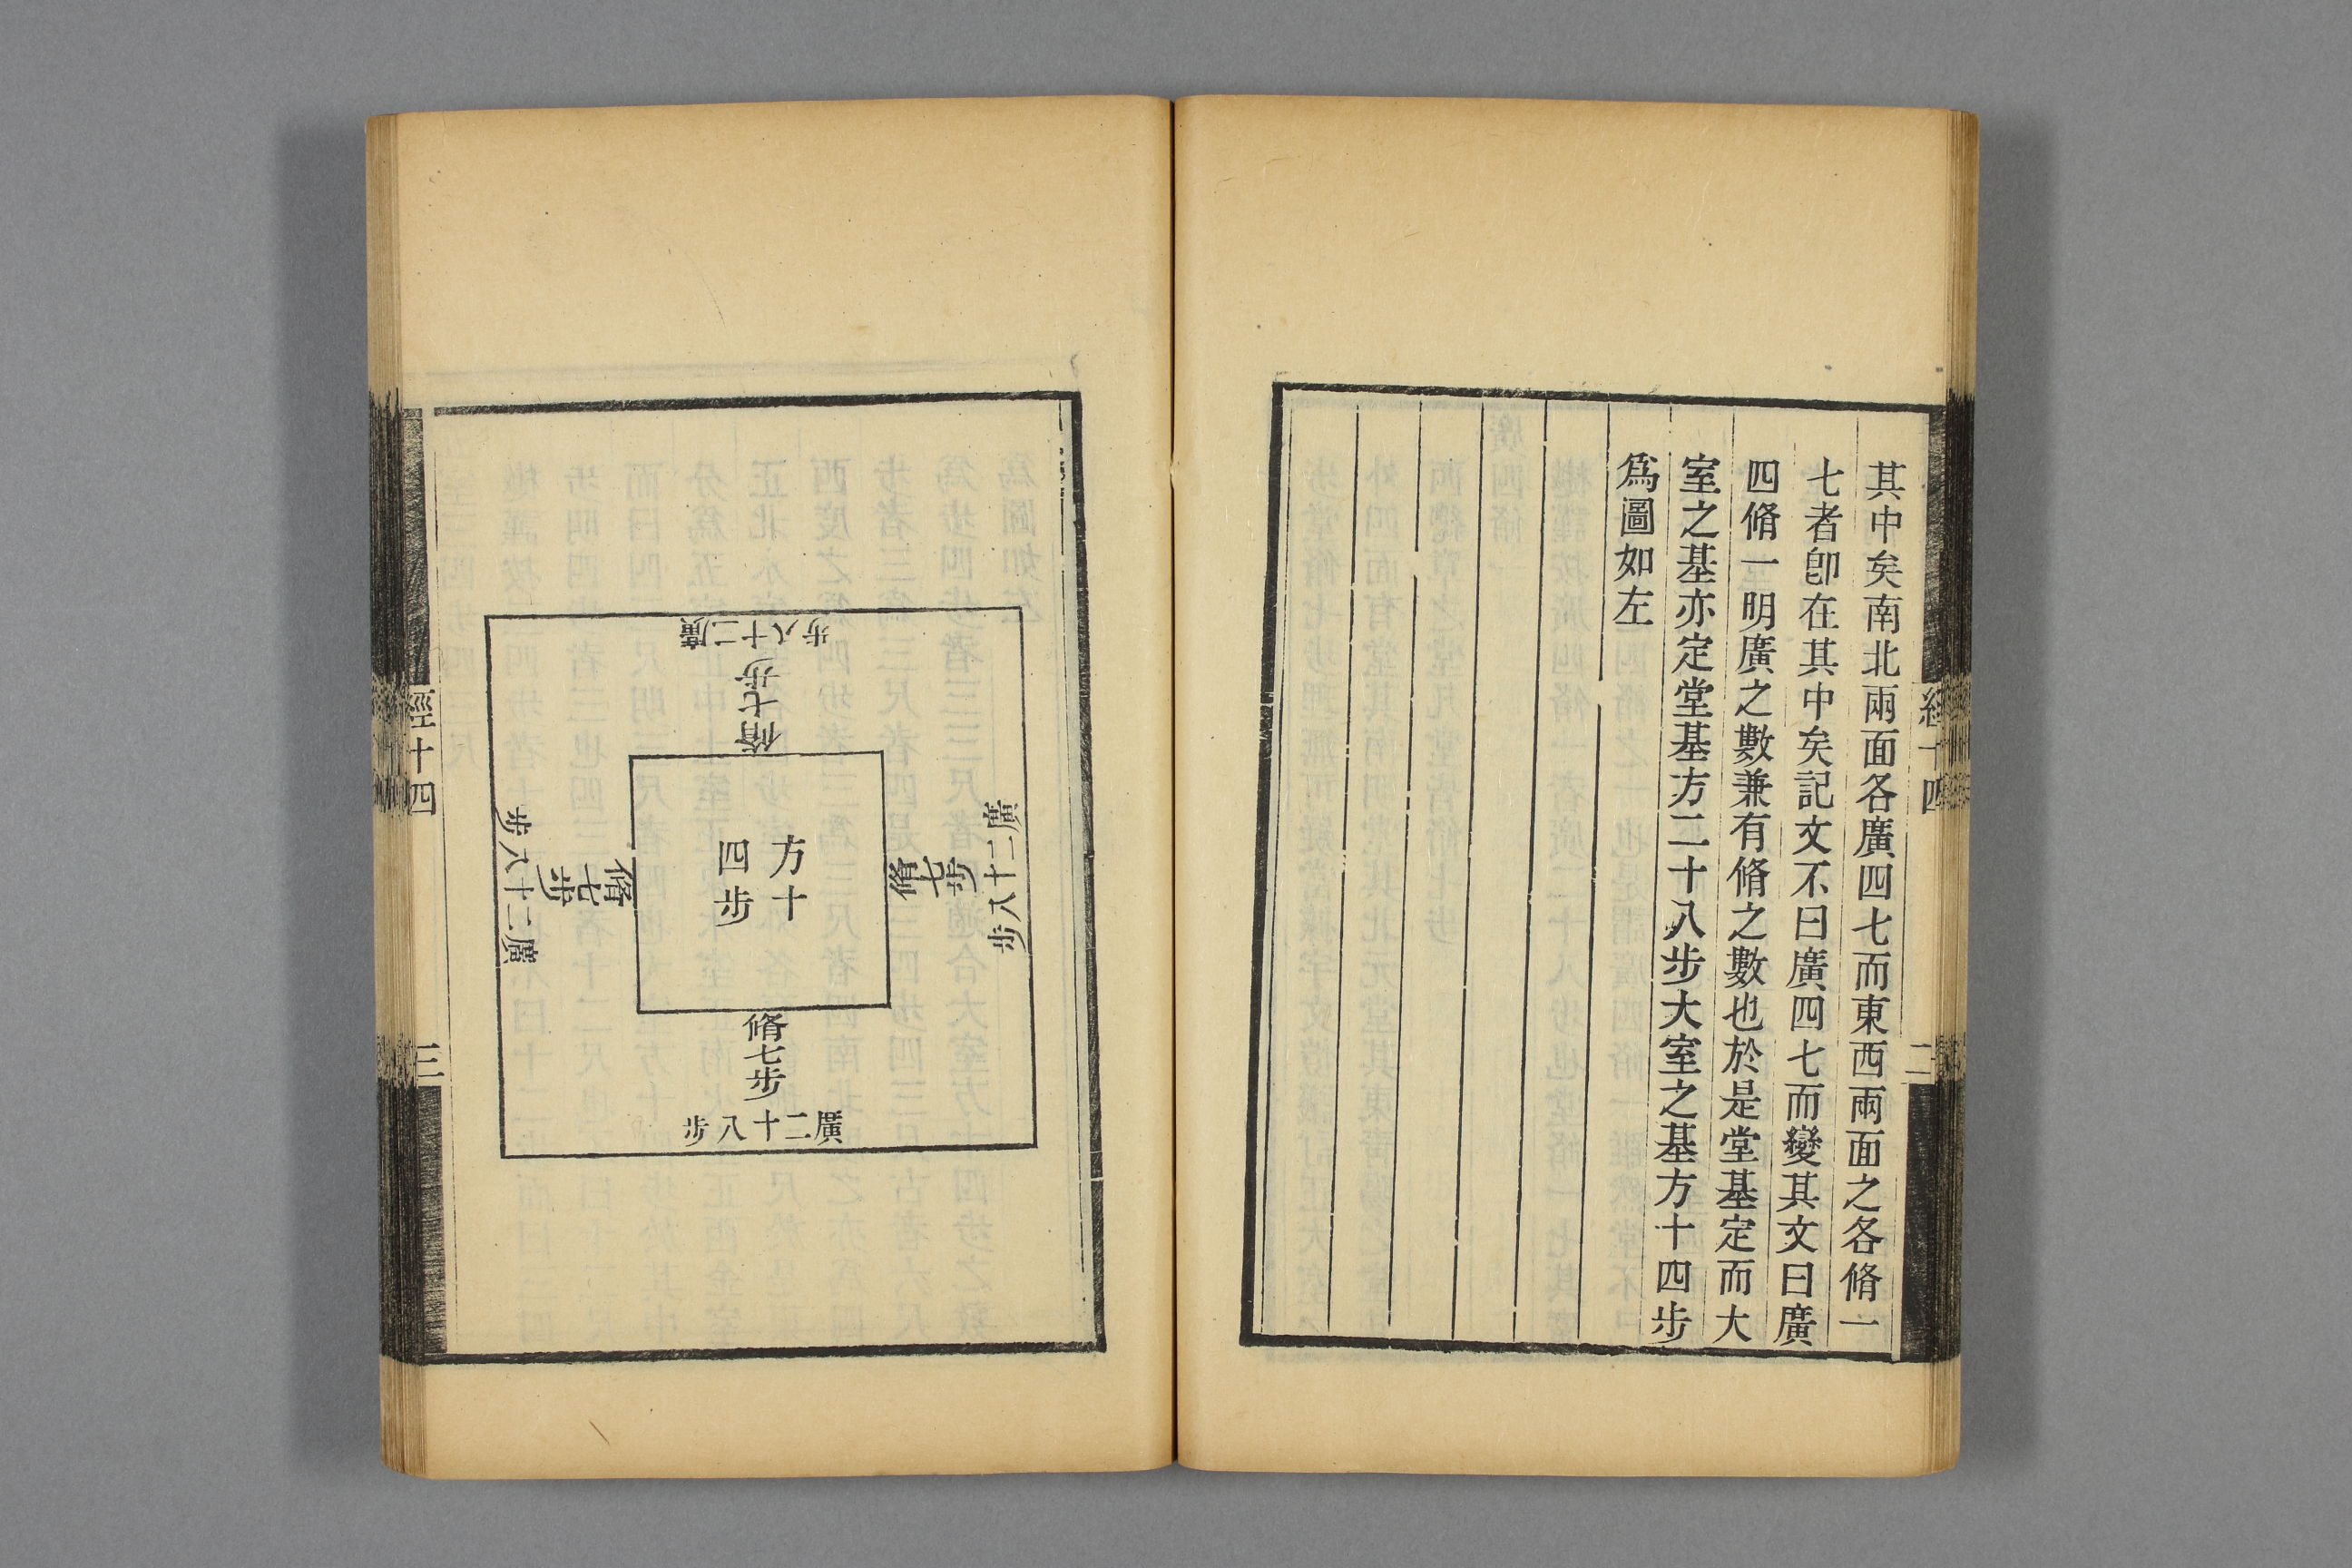 其中矣南北兩面各廣四七而東西兩面之各脩一
七者卽在其中矣記文不曰廣四七而變其文曰廣
四脩一明廣之數兼有脩之數也於是堂基定而大
室之基亦定堂基方二十八步大室之基方十四步
爲圖如左
經十四
二
廣二十八步
脩七步
廣二十八步
脩七步
方十
四步
脩七步
廣二十八步
脩七步
廣二十八步
經十四
三